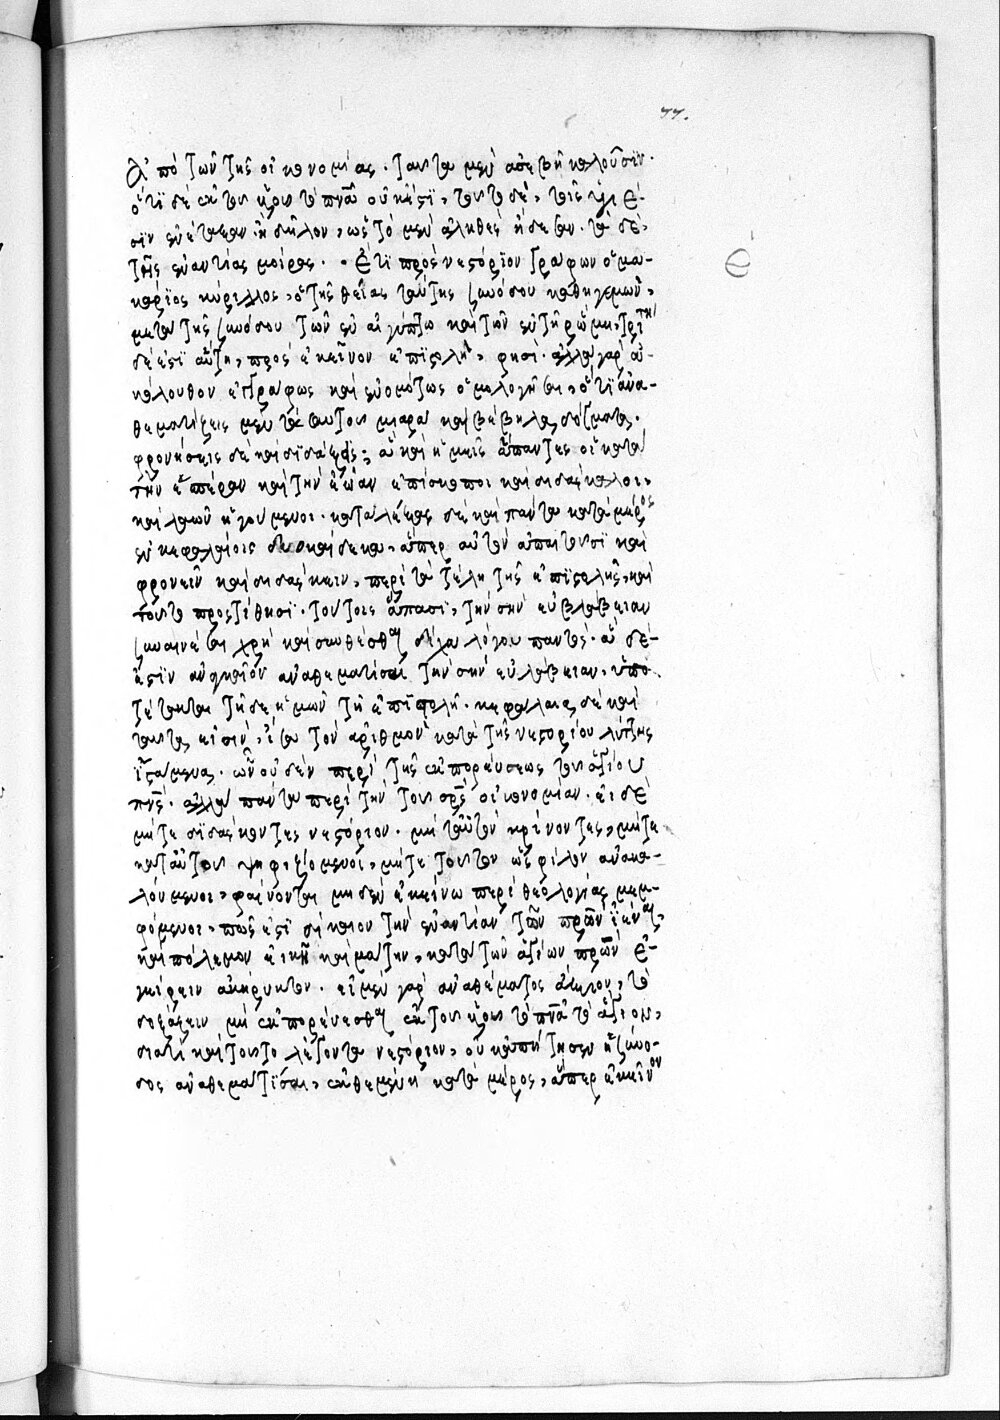 77.
ἀπὸ τῶν τῆς οἰκονομίας. ταῦτα μὲν ἀσεβῆ καλοῦσιν.
ὅτι δὲ ἐκ τοῦ πρς τὸ πνᾶ οὐκ ἔστι, τοῦτο δὲ,
σιν εὐέταιρον. ἢ δῆλον, ὡς τὸ μὲν ἀληθὲς ᾔδεισαν. τὰ δὲ,
τῆς ἐναντίας μοίρας. Ἔτι πρὸς νεστόριον γράφων ὁ μα-
Ε
κάριος κύριλλος, ὁ τῆς θείας ταύτης συνόδου καθηγεμὼν,
μετὰ τῆς συνόδου τῶν ἐν αἰγύπτω καὶ τῶν ἐν τῆ ῥώμη, τρίτη
δέ ἐστι αὕτη, πρὸς ἐκεῖνον ἐπιστολὴ, φησί. ἀλλὰ γὰρ ἀ-
κόλουθον ἐγγράφως καὶ ἐνομότως ὁμολογῆσαι, ὅτι ἀνα-
θεματίζεις μὲν τὰ σαυτοῦ μιαρὰ καὶ βέβηλα δόγματα.
φρονήσεις δὲ καὶ διδάξεις, ἃ καὶ ἡμεῖς ἅπαντες οἱ κατὰ
τὴν ἑσπέραν καὶ τὴν ἑώαν ἐπίσκοποι καὶ διδάσκαλοι,
καὶ λαῶν ἡγούμενοι. καταλέξας δὲ καὶ πάντα κατὰ μέρος
ἐν κεφαλαίοις δυοκαίδεκα, ἅπερ αὐτὸν ἀπαιτοῦσι καὶ
φρονεῖν καὶ διδάσκειν, περὶ τὰ τέλη τῆς ἐπιστολῆς, καὶ
τοῦτο προςτίθησι. τούτοις ἅπασι, τὴν σὴν εὐλάβειαν
συναινέσαι χρὴ καὶ συνθέσθαι δίχα λόγου παντός. ἃ δέ
ἐστιν ἀναγκαῖον ἀναθεματίσαι τὴν σὴν εὐλάβειαν, ὑπο-
τέτακται τῆδε ἡμῶν τῆ ἐπιστολῆ. κεφάλαια δὲ καὶ
ταῦτα εἰσὶν, ἰσα τὸν ἀριθμὸν κατὰ τῆς νεστορίου λύττης
ἱστάμενα. ὧν οὐδὲν περὶ τῆς ἐκπορεύσεως τοῦ ἁγίου
πνς. ἀλλὰ πάντα περὶ τὴν τοῦ σρς οἰκονομίαν. εἰ δὲ
μήτε διδάσκοντες νεστόριον. μὴ ταῦτὸν κρίνοντες, μήτε
κατ αὐτοῦ ψηφιζόμενοι, μήτε τοῦτον ὡς φίλον ἀνακα-
λούμενοι, φαίνονται μηδὲν ἐκείνω περὶ θεολογίας μεμ-
φόμενοι, πῶς ἐστι δίκαιον τὴν ἐναντίαν τῶν πρων ἰέναι,
καὶ πόλεμον εἰκῆ καὶ μάτην, κατὰ τῶν ἁγίων πρων ἐ-
γείρειν ἀκήρυκτον. εἰ μὲν γὰρ ἀναθέματος ἄξιον, τὸ
δοξάζειν μὴ ἐκπορεύεσθαι ἐκ τοῦ πρς τὸ πνᾶ τὸ ἅγιον,
διατί καὶ τοῦτο λέγοντα νεστόριον, οὐκ ἀπήτησεν ἡ σύνο-
δος ἀναθεματίσαι, ἐκθεμένη κατὰ μέρος, ἅπερ ἐκεῖνον